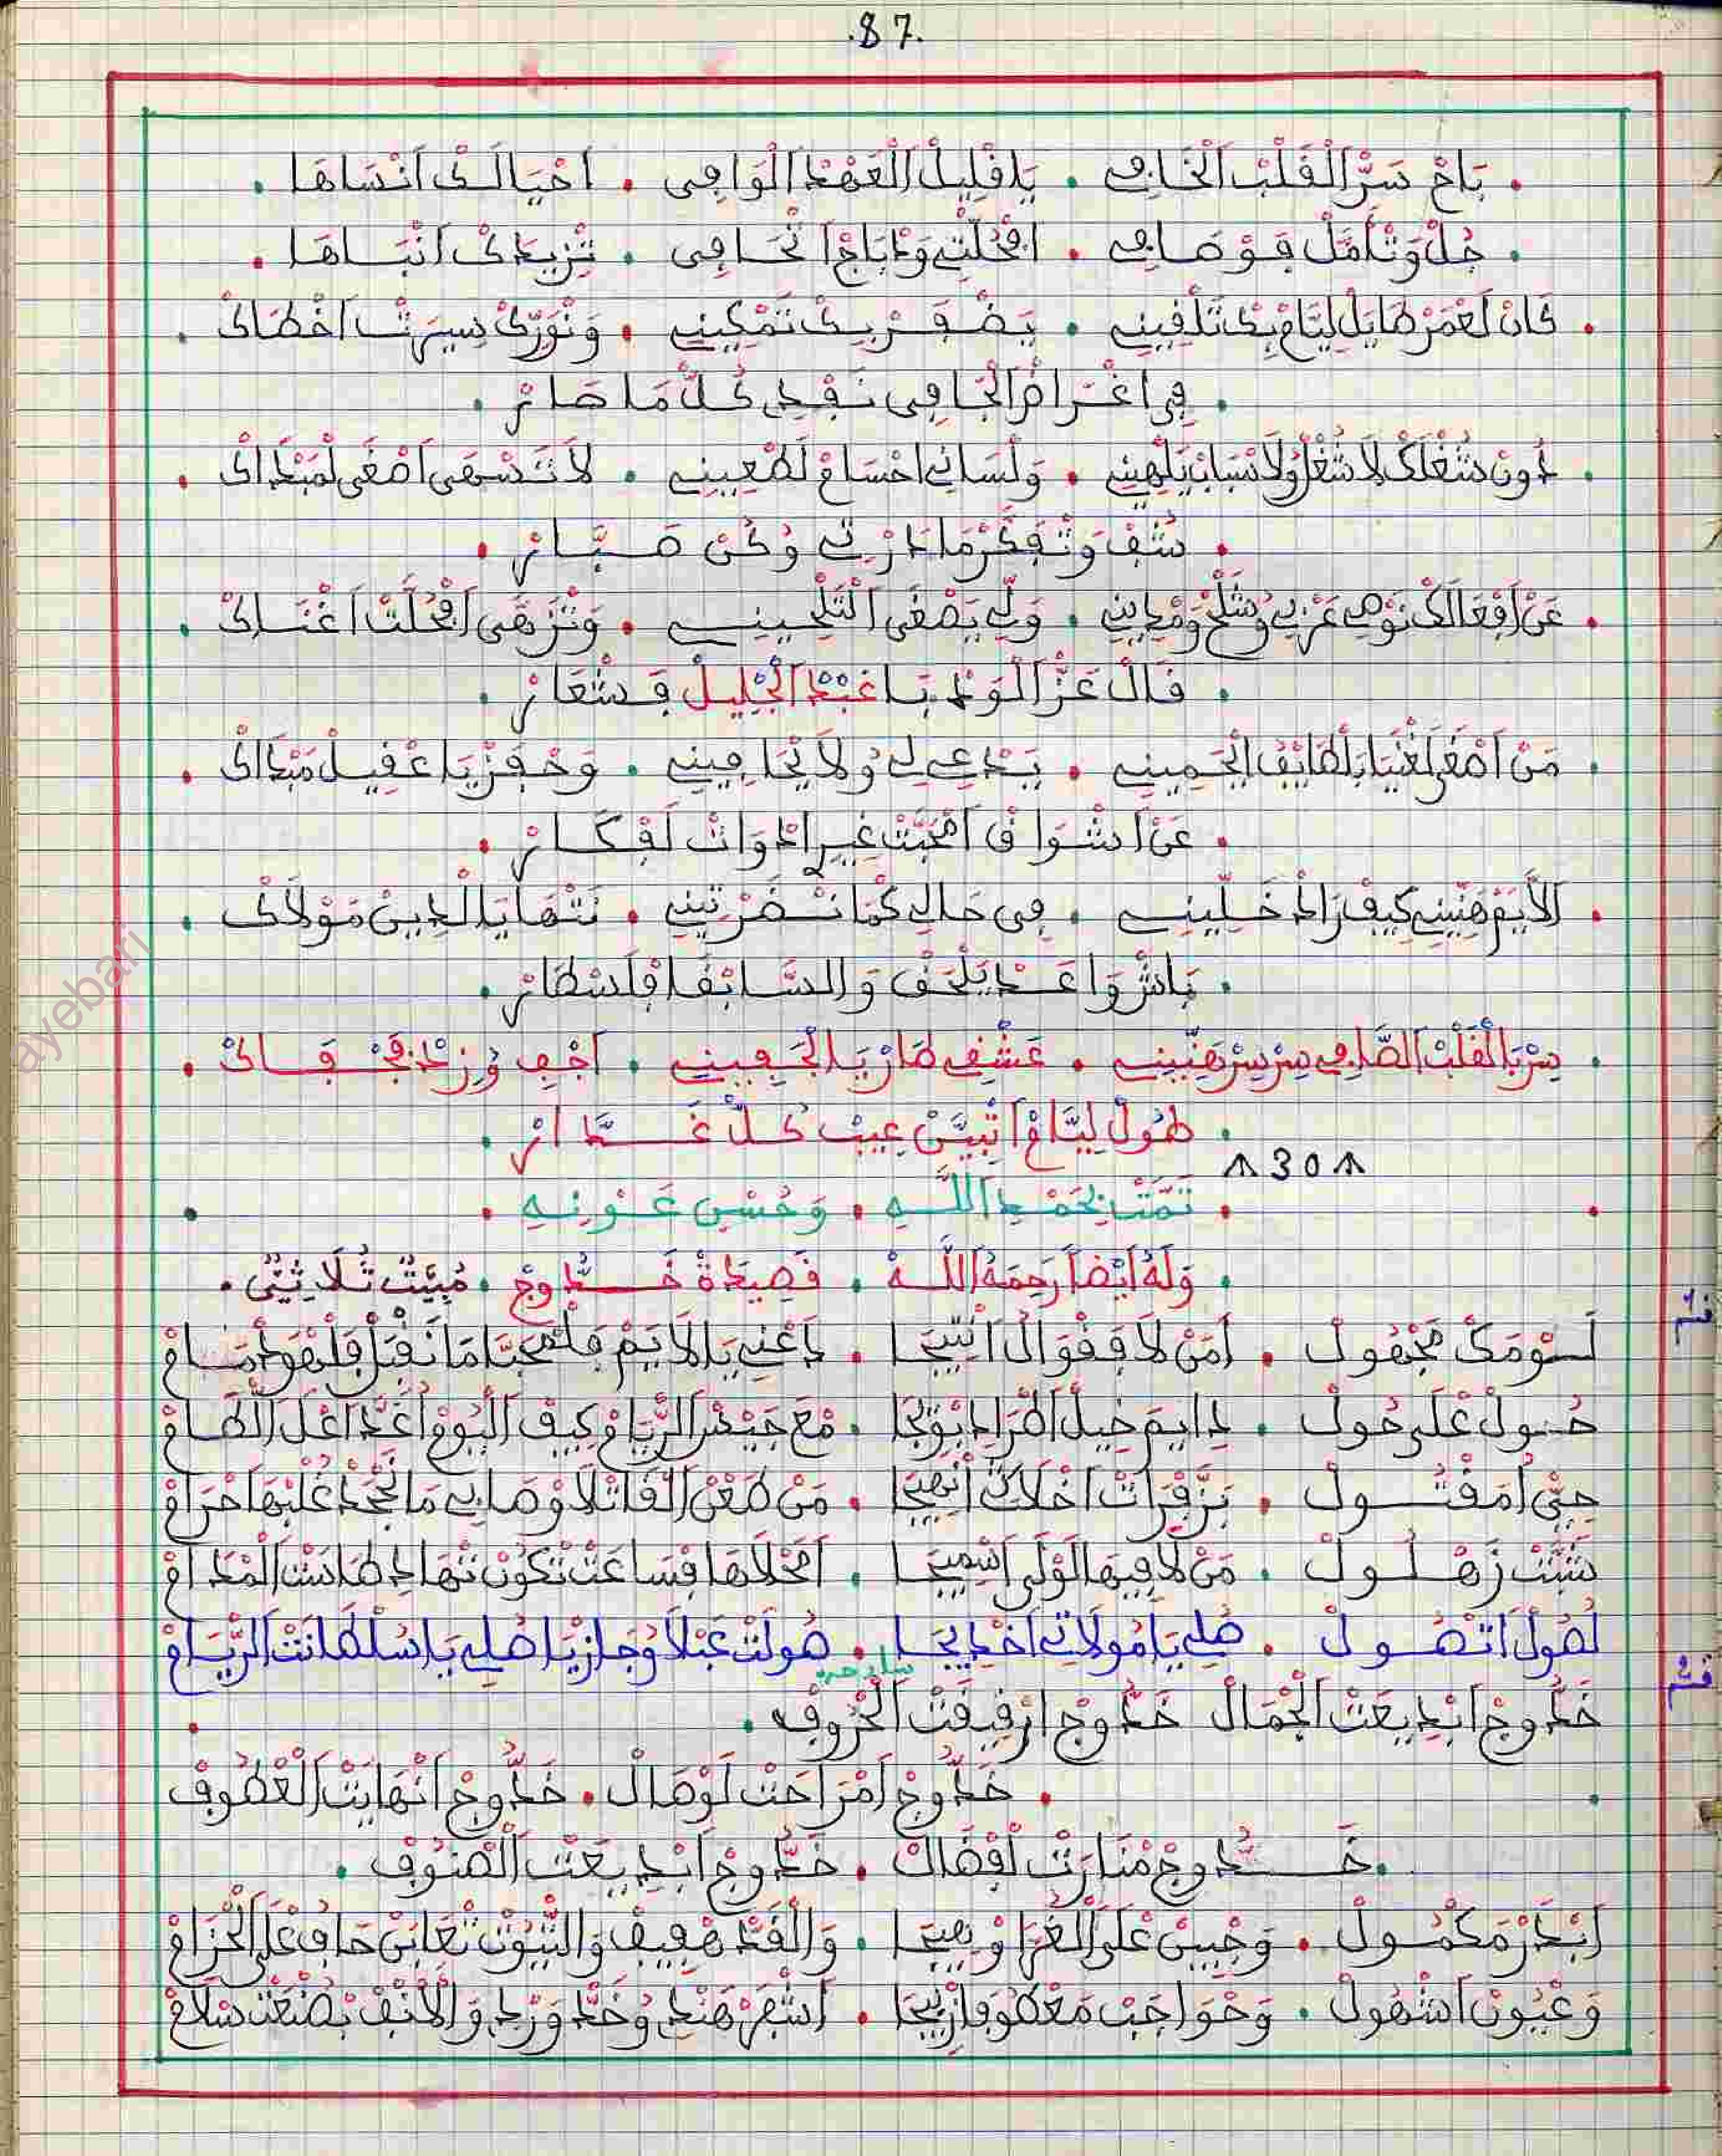 .87.
. بَاحْ سَرّ اَلْقَلْبْ اَلْخَافِي . يَا قْلِيلْ اَلْعَهْدْ اَلْوَافِي . اَحْيَالَكْ اَنْسَاهَا .
. جُلْ وَتْأَمَّلْ فَوْصَافِي . اَفْحُلْتِي وَدْبَاجْ اَتْحَافِي . تْزِيدَكْ اَنْبَاهَا .
. كَانْ لَعْمَرْ طَايَلْ لِيَّامْ بِكْ تَلْقِينِي . يَضْفَرْ بِيكْ تَمْكِينِي . وَنْوَرِّكْ سِيرْتْ اَخْطَاكْ .
. فِي اغْرَامْ اَلْجَافِي نَفْدِي كُلّْ مَا صَارْ .
. دُونْ شُغْلَكْ لَا شُغْلْ وُلَا سْبَابْ يَلْهِينِي . وَلْسَانِي احْسَامْ لَطْعِينِي . لَا تَسْهَى اَصْغَى لْمَبْدَاكْ .
. شُفْ وَتْفَكَّرْ مَا دَرْتِي وُكُنْ صَبَّارْ .
. عَنْ اَفْعَالَكْ نَوْهِي عَرْبِي وُشَلْحْ وَمْدِينِي . وَلِّي يَصْغَى اَلْتَلْحِينِي . وَتْزَهَى اَفْحُلَّتْ اَغْنَاكْ .
. قَالْ عَزّْ اَلْوَدْ بَا عَبْدْ اَلْجْلِيلْ فَشْعَارْ .
. مَنْ اَصْغَى لَغْنَيَا بَلْطَايَفْ اَلْحَمِينِي . يَدْعِي لِي وُلَا يْجَافِينِي . وَحْفَزْ يَا عْفِيلْ مَبْدَاكْ .
. عَنْ اَشْوَاقْ اَمْحَبَّتْ غِيرْ اَدْوَاتْ لَفْكَارْ .
. اَلَايَمْ هَنِّينِي كِيفْ رَادْ خَلِّينِي . فِي حَالِي كْمَا تَنْضَرْنِي . نَتْهَا يَا الدِينْ مَوْلَاكْ .
. بَاشْ وَاعَدْ يَلْحَقْ وَالسَّابْقَا فْلَسْطَارْ .
. سِرْ يَا اَلْقَلْبْ اَلصَّافِي سِرْ سِرْ هَنِّينِي . عَشْقِي طَارْ يَا اَلْجَافِينِي . اَجْفِي وُزِدْ فَجْفَاكْ .
. طُولْ لِيَّامْ اَتْبَيَّنْ عِيبْ كُلّْ غَدَّارْ .
^ 30 ^
. تَمَّتْ بِحَمْدِ اَللَّهِ . وَحُسْنِ عَوْنِهِ .
. وَلَهُ اَيْضاً رَحِمَهُ اَللَّهْ . قَصِيدَةْ خَدُّوجْ . مُبَيَّتْ ثُلَاثِيٌّ .
لَسْوَمَكْ مَجْهُولْ . اَمَنْ لَا فَقْوَالْ اَنْتِيجَا . دَاعْنِي يَا اَلَايَمْ فَلَمْحَبَّا مَا نَقْبَلْ فَلْهْوَى مْلَامْ
حُولْ عْلَى حُولْ . دَايَمْ خِيلْ اَطْرَادْ بُوَيْجَا . مْعَ جَيْشْ اَلرّْيَامْ كِيفْ اَلْيُومْ اَغْدَا عْلَ اَلْطَامْ
حِيِّي اَمَقْتُولْ . بَزَّفْرَاتْ اَخْلَاكْ اَبْهِيجَا . مَنْ طَعْنْ اَلْقَاتْلَا وْصَابِي مَا نَجْحَدْ عْلِيهَا حْرَامْ
شَبَّتْ زَهْلُولْ . مَنْ لَا فِيهَا لَوْلَى اَسْمِيجَا . اَمَحْلَاهَا فْسَاعَتْ تْكُونْ تَنْهَادْ طَاشَتْ اَلْمْدَامْ
لَصُولْ اَتْصُولْ . صُلِي يَا مُولَاتِي اَخْدِيجَا . صُولَتْ عَبْلَا وُجَازْيَا صُلِي يَا سُلْطَانَتْ اَلرّْيَامْ
خَدُّوجْ اَبْدِيعَتْ اَلْجْمَالْ خَدُّوجْ اَرْقِيقَتْ اَلْحْرُوفْ .
. خَدُّوجْ اَمْرَاحَتْ لَوْصَالْ . خَدُّوجْ اَنْهَايَتْ اَلْعْطُوفْ
. خَدُّوجْ مْنَارَتْ اَفْضَالْ . خَدُّوجْ اَبْدِيعَتْ اَلْصْنُوفْ .
اَبْدَرْ مَكْمُولْ . وَجْبِينْ عْلَى اَلْغْرَا وْهِيجَا . وَالْقَدّْ هْفِيفْ وَالتّْيُوتْ تْعَابَنْ حَافُو عْلَى اَلْحْزَامْ
وَعْيُونْ اَشْهُولْ . وَحْوَاجَبْ مَعْطُوفَا زْبِيجَا . اَشْفَرْ هَنْدِي وُخَدّْ وَرْدِي وَالْاَنْفْ بْصَنْعَتْ سْلَامْ